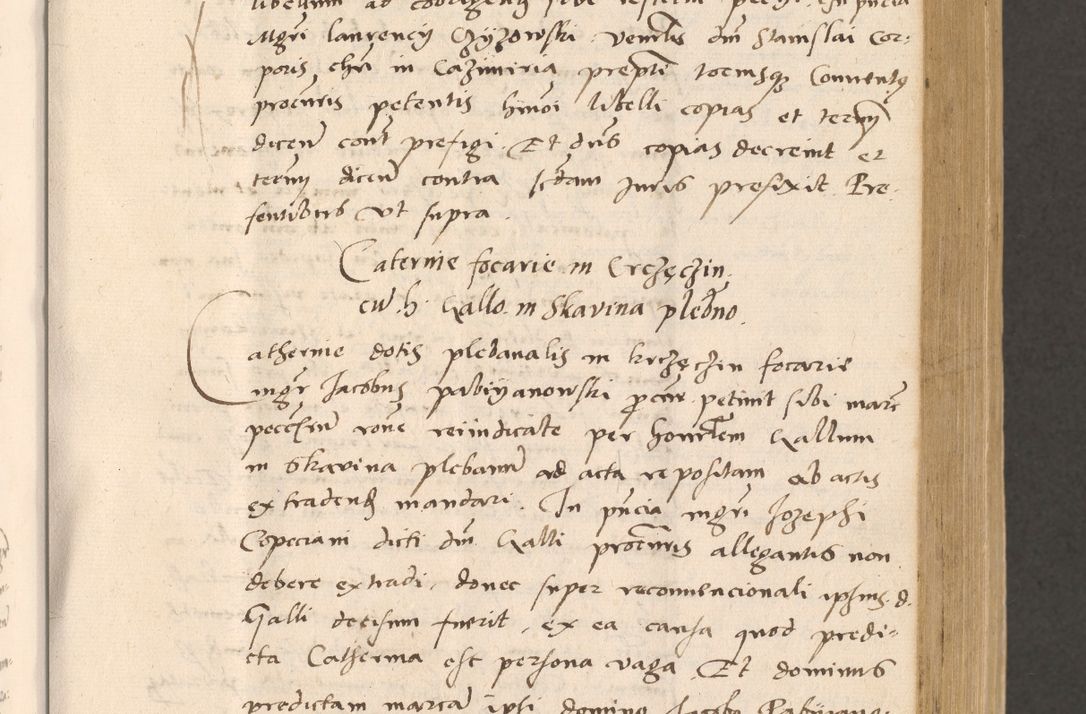 libellum ad
Mgri laurencij Czyzowski venerlis dni Stanislai Cor:
poris chri in Cazimiria prepti totiusq3 Conventq
procuris petentis hmoi libelli copias et termi
dicen cont prefigi. Et dns copias decrevit et
termi dicen contra Icdam Juris prefixit Pre.
sentibus ut supra.
Caterine focarie in Crzęczin.
cu. h. Gallo. in Skavina plebno.
Catherine dotis plebanalis in krzęczin focarie
mgr Jacobus pabiyanowski pcur petiuit sibi marc
pecc rone reiindicate per honorlem Gallum
in Skavina plebanum ad acta repositam ab actis
extradend mandari. In pncia mgri Jozephi
Copeciani dicti dni Galli procuris allegantis non
debere extradi, donec super reconvencionali ipsius d.
Galli decisum fuerit, ex ea causa quod predi-
cta Catherina est persona vaga. Et dominus
predictam marcam ipsi domino Jacobo Pabiiano